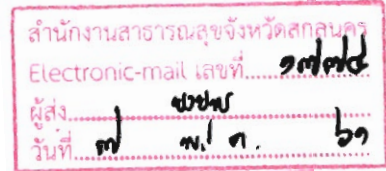 สำนักงานสาธารณสุขจังหวัดสกลนคร
Electronic-mail เลขที่.....๑๗๗๔
ผู้ส่ง.....
วันที่.....๗ พ.ค. ๖๑